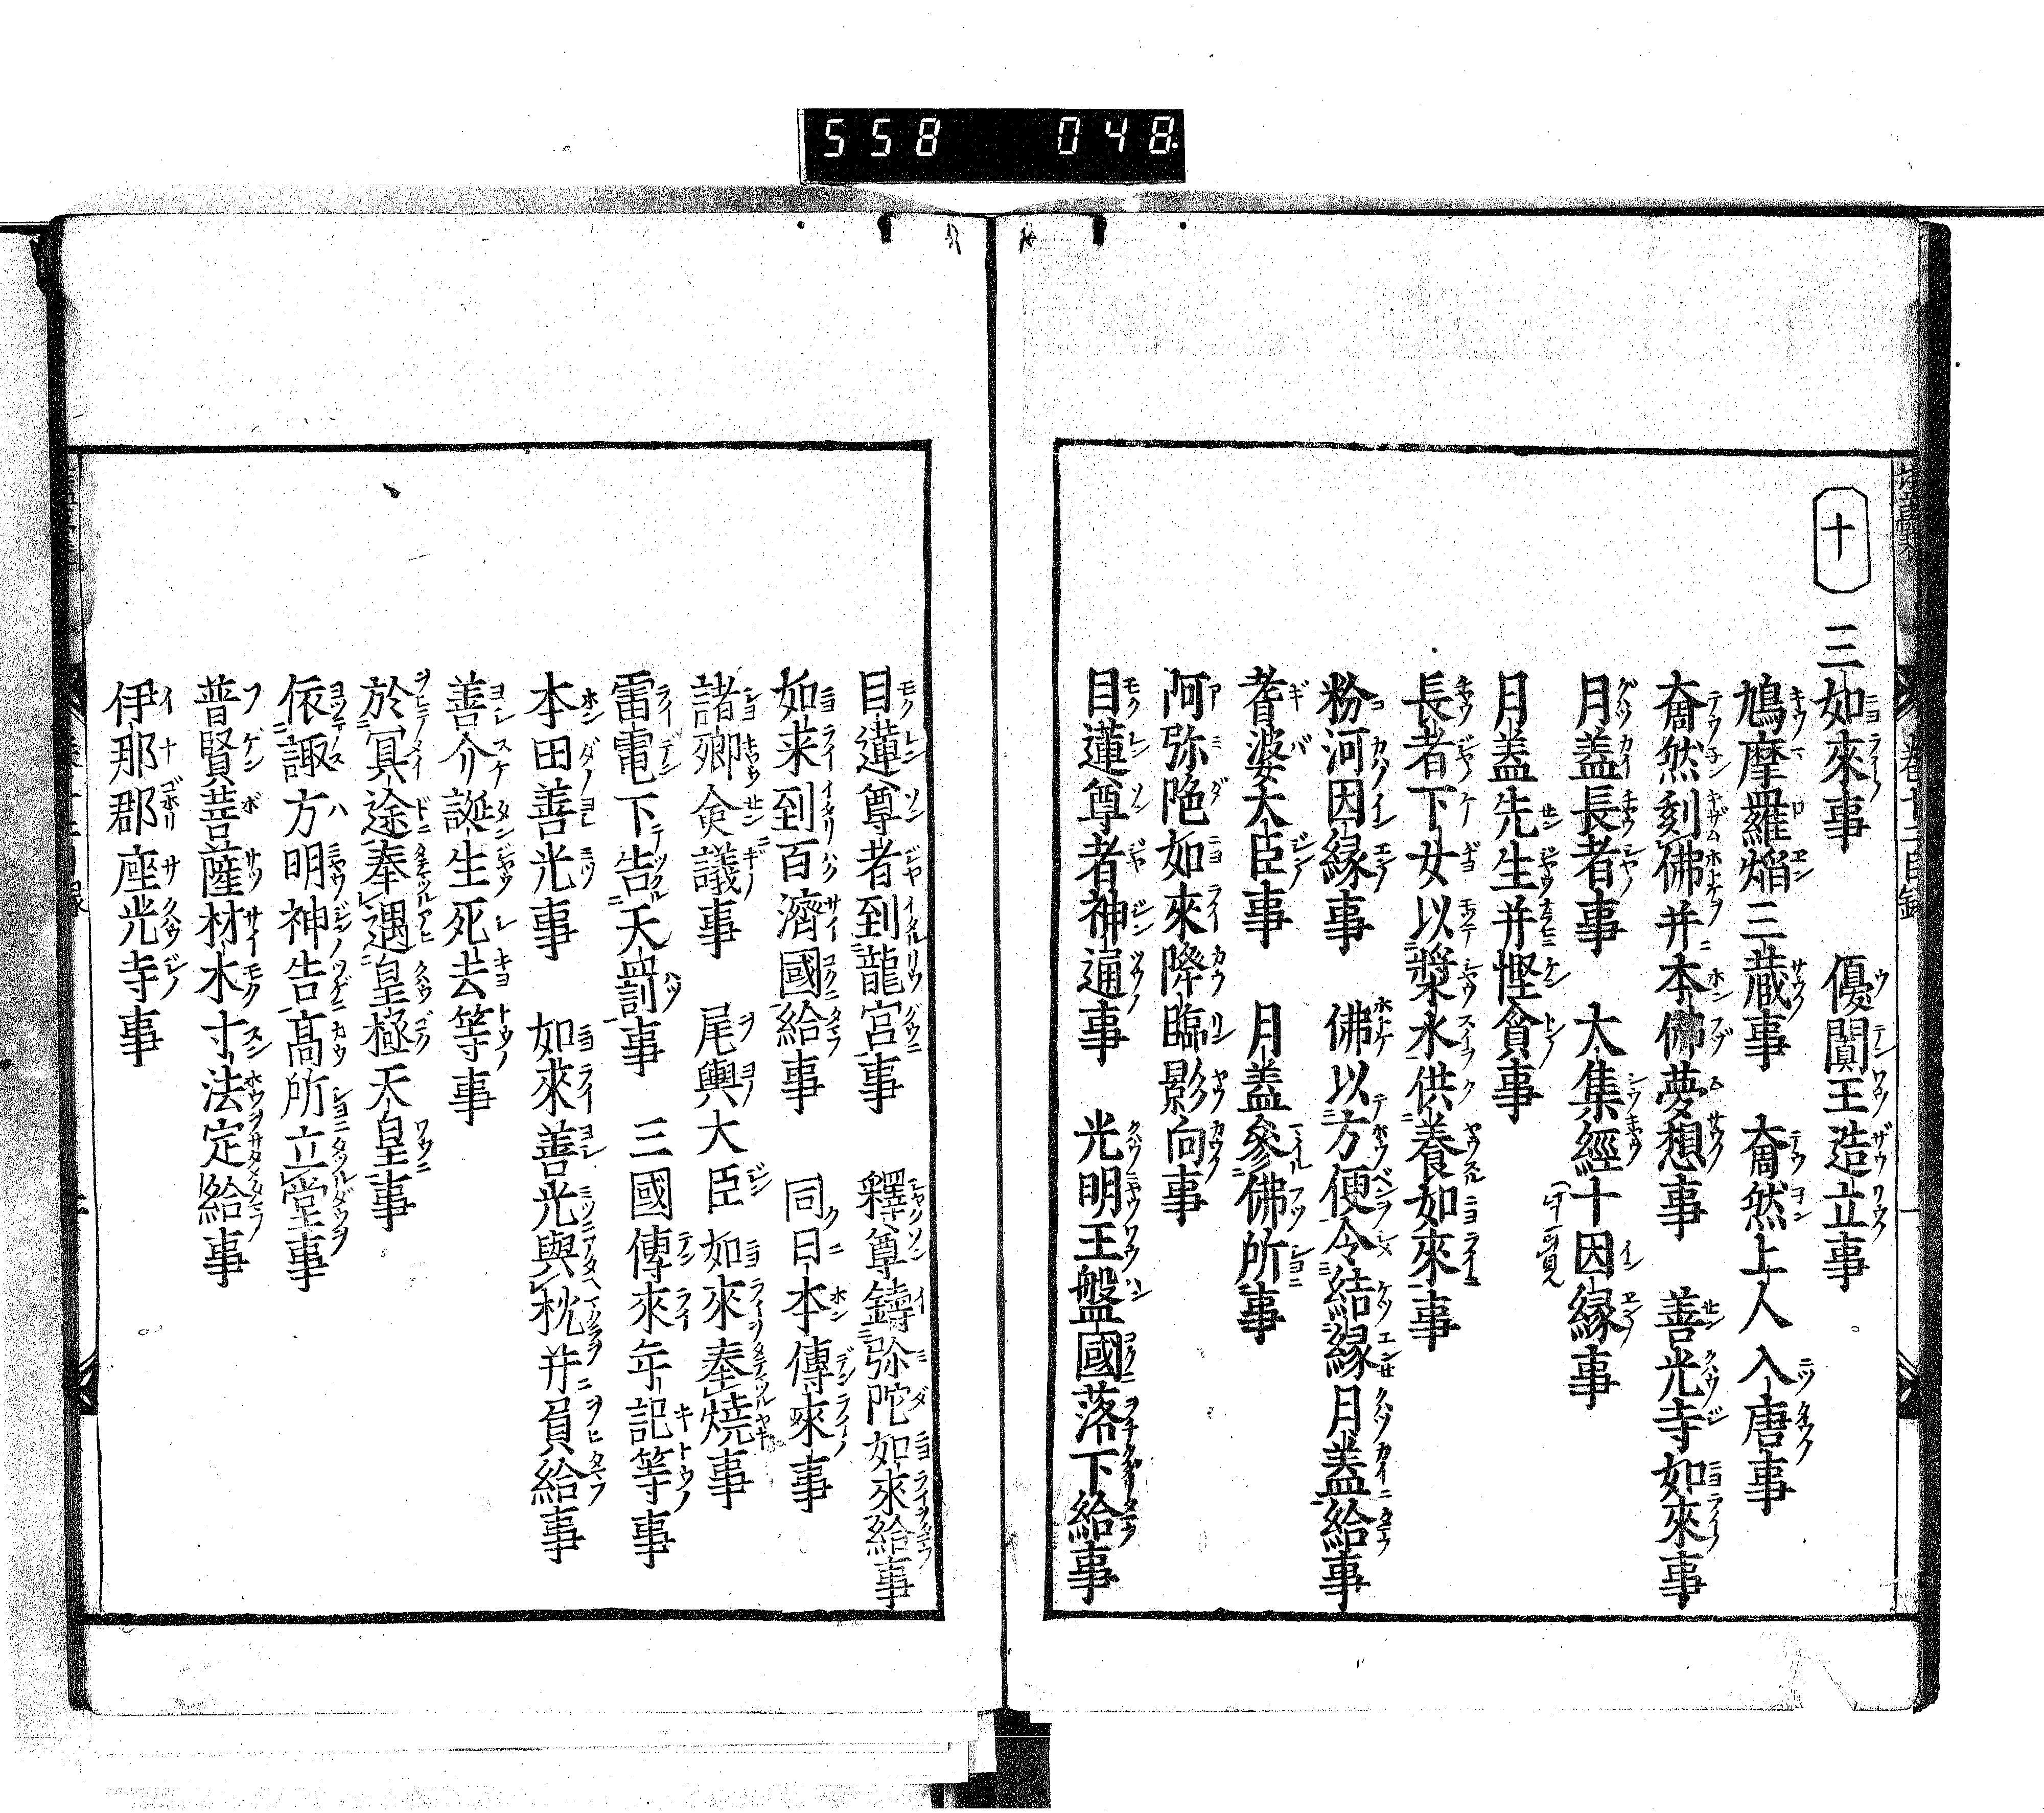 558 048
十
三如來事 優闐王造立事
鳩摩羅焔三蔵事 奝然上人入唐事
奝然刻佛并本佛夢想事 善光寺如來事
月盖長者事 大集經十因縁事
月盖先生并慳貪事
長者下女以漿水供養如來事
粉河因縁事 佛以方便令結縁月盖給事
耆婆大臣事 月盖參佛所事
阿弥陁如來降臨影向事
目蓮尊者神通事 光明王盤國落下給事
目蓮尊者到龍宮事 釋尊鑄弥陀如來給事
如来到百濟國給事 同日本傳來事
諸卿僉議事 尾輿大臣如來奉燒事
雷電下告天罸事 三國傳來年記等事
本田善光事 如來善光與枕并負給事
善介誕生死去等事
於冥途奉遇皇極天皇事
依諏方明神告髙所立堂事
普賢菩薩材木寸法定給事
伊那郡座光寺事